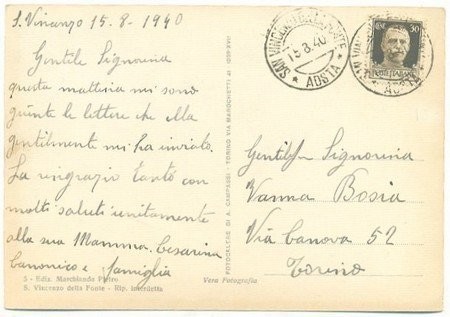 S. Vincenzo 15-8-1940
Gentile Signorina
questa mattina mi sono
giunte le lettere che ella
gentilmente mi ha inviato.
La ringrazio tanto con
molti saluti unitamente
alla sua Mamma. Cesarina
Canonico e famiglia
3 - Ediz. Marchiando Pietro
S. Vincenzo della Fonte - Rip. interdetta
Vera Fotografia
FOTOCELERE DI A. CAMPASSI - TORINO VIA MAROCHETTI 41
SAN VINCENZO DELLA FONTE
15.8.40
* AOSTA *
30
POSTE ITALIANE
AOSTA
Gentil Signorina
Vanna Bosia
Via Canova 52
Torino